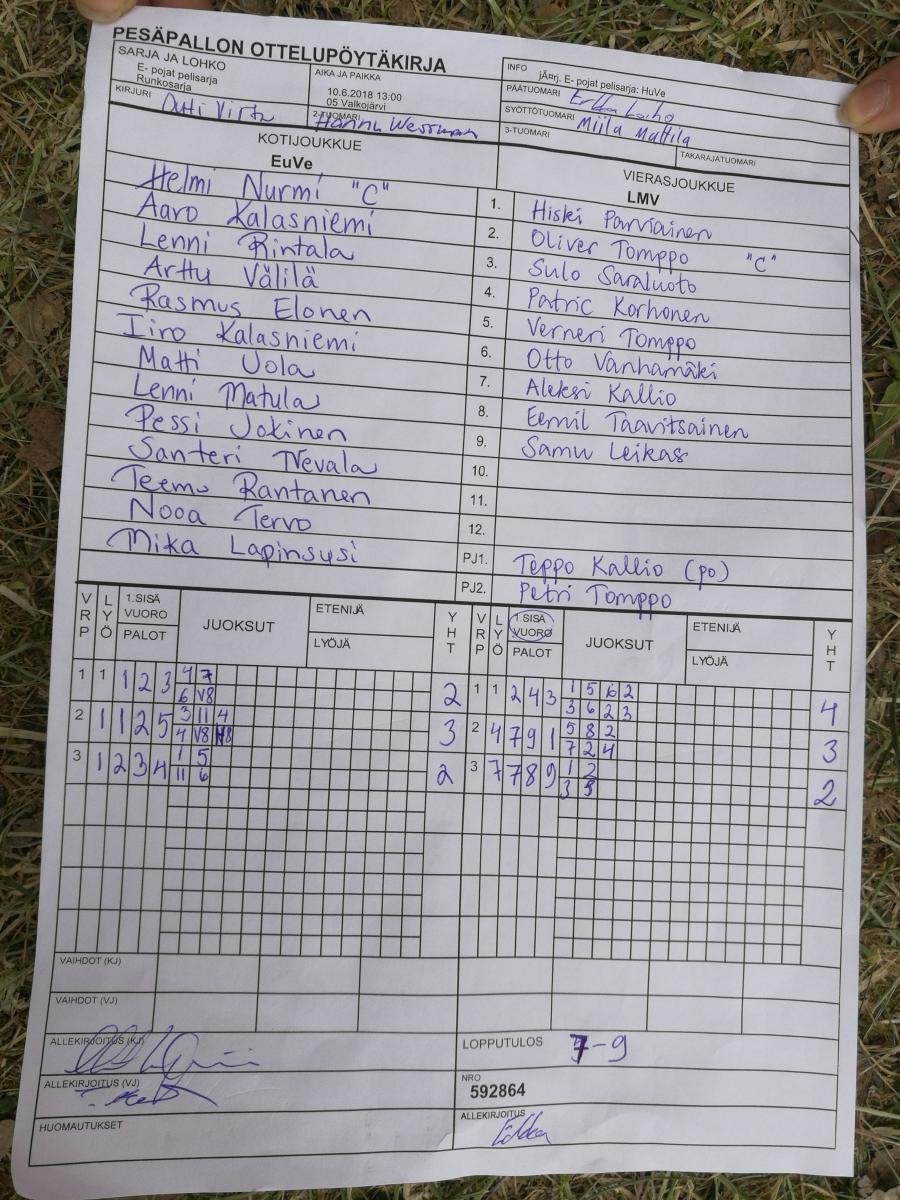 PESÄPALLON OTTELUPÖYTÄKIRJA
SARJA JA LOHKO
E- pojat pelisarja
Runkosarja
AIKA JA PAIKKA
10.6.2018 13:00
05 Valkojärvi
INFO
jÃ¤rj. E- pojat pelisarja: HuVe
PÄÄTUOMARI
SYÖTTÖTUOMARI Miila Mattila
3-TUOMARI
TAKARAJATUOMARI
KIRJURI Outi Virta
2-TUOMARI Hannu Wessman
KOTIJOUKKUE
EuVe
VIERASJOUKKUE
LMV
Helmi Nurmi "C" 1. Hiski Parviainen
Aaro Kalasniemi 2. Oliver Tomppo "C"
Lenni Rintala 3. Sulo Saraluoto
Arttu Välilä 4. Patric Korhonen
Rasmus Elonen 5. Verneri Tomppo
Iiro Kalasniemi 6. Otto Vanhamäki
Matti Uola 7. Aleksi Kallio
Lenni Matula 8. Eemil Taavitsainen
Pessi Jokinen 9. Samu Leikas
Santeri Nevala 10.
Teemu Rantanen 11.
Nooa Tervo 12.
Mika Lapinsusi PJ1. Teppo Kallio (po)
PJ2. Petri Tomppo
VRP LYÖ 1.SISÄ VUORO PALOT JUOKSUT ETENIJÄ LYÖJÄ YHT VRP LYÖ 1.SISÄ VUORO PALOT JUOKSUT ETENIJÄ LYÖJÄ YHT
1 1 1 2 3 4 7 2 1 1 2 4 3 1 5 6 2 4
6 V8 3 6 2 3
2 1 1 2 5 3 11 4 3 2 4 7 9 1 5 8 2 3
4 V8 7 2 4
3 1 2 3 4 1 5 2 3 7 7 8 9 1 2 2
11 6 3
VAIHDOT (KJ)
VAIHDOT (VJ)
ALLEKIRJOITUS (KJ)
LOPPUTULOS 7-9
ALLEKIRJOITUS (VJ)
NRO
592864
HUOMAUTUKSET
ALLEKIRJOITUS